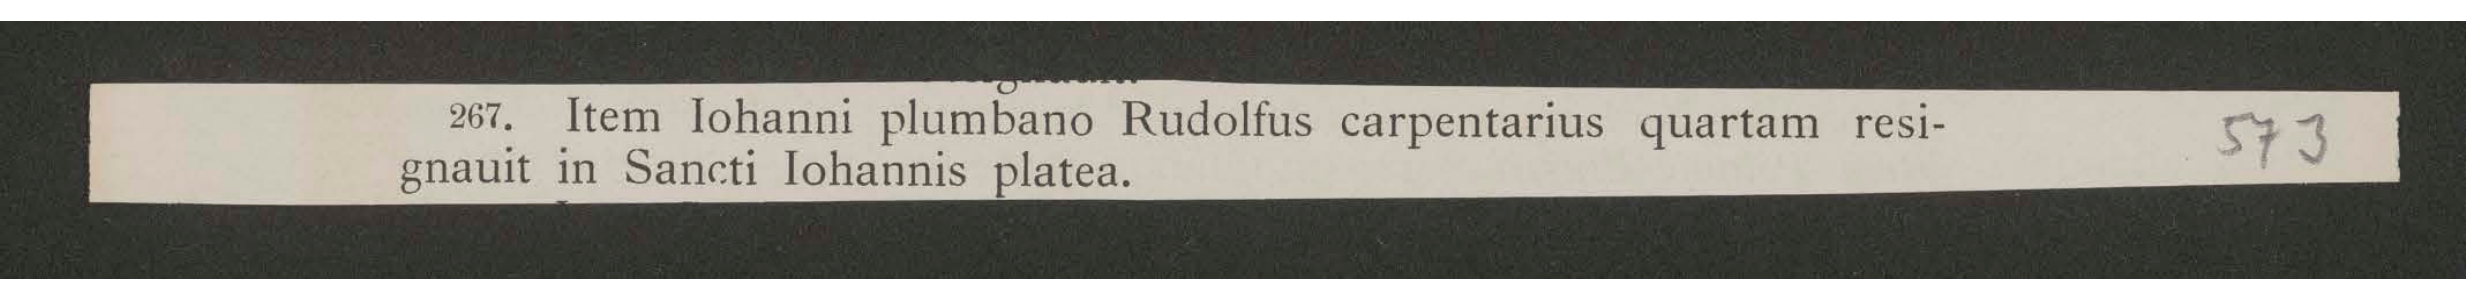 267. Item Iohanni plumbano Rudolfus carpentarius quartam resi-
gnauit in Sancti Iohannis platea.
573